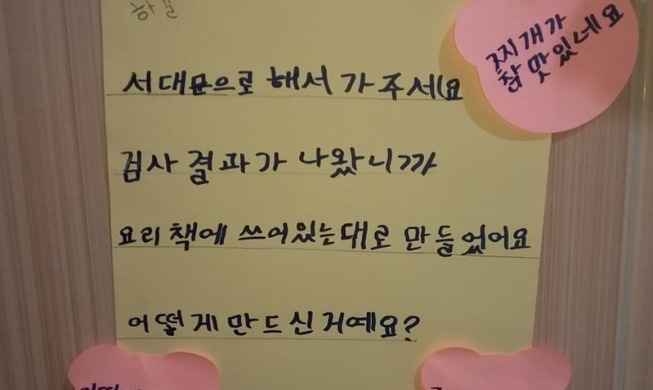 찌개가
참 맛있네요
서대문으로 해서 가 주세요
검사 결과가 나왔니까
요리 책에 쓰어있는대로 만들었어요
어떻게 만드신 거예요?